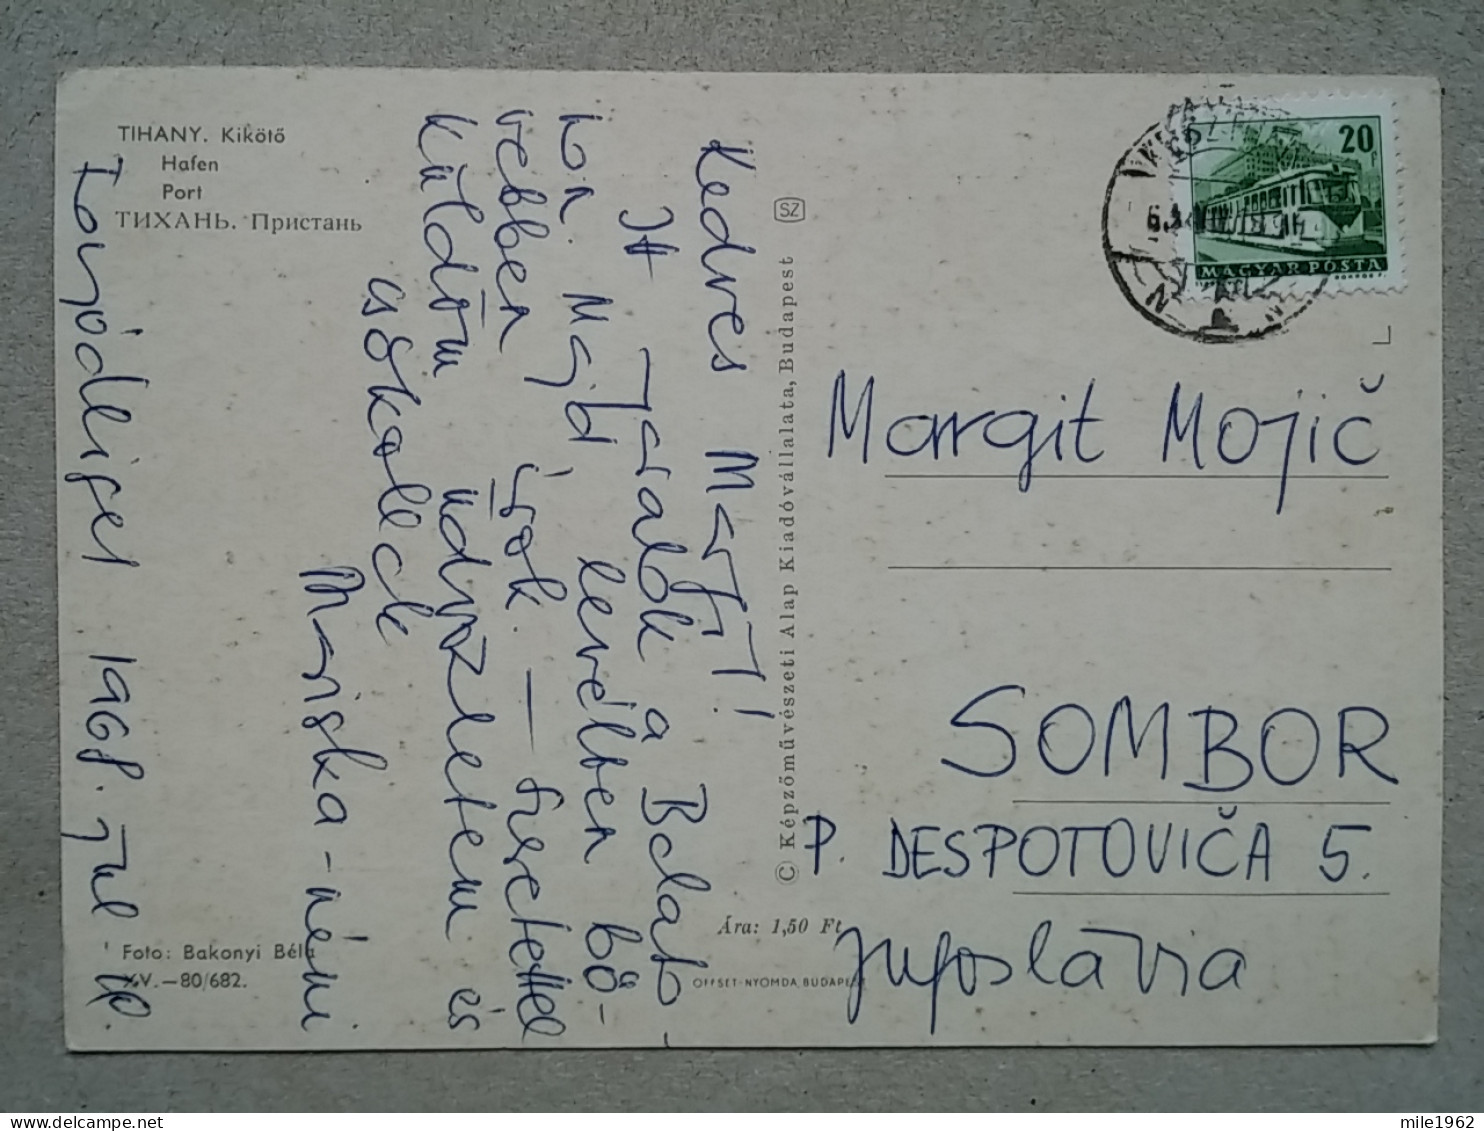 TIHANY. Kikötő
Hafen
Port
ТИХАНЬ. Пристань
Kedves Margit!
Itt nyaralok a Balato-
non. Majd levélben bő-
vebben írok. — Szeretettel
küldöm üdvözletem és
csókollak
Mariska-néni
1968. Jul. 10.
Foto: Bakonyi Béla
XV.—80/682.
© Képzőművészeti Alap Kiadóvállalata, Budapest
SZ
Ára: 1,50 Ft
OFFSET-NYOMDA, BUDAPEST
20f
MAGYAR POSTA
Margit Mojič
SOMBOR
P. DESPOTOVIČA 5.
Jugoslávia
mile1962